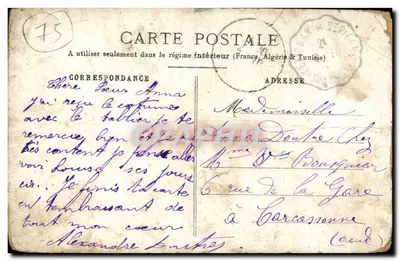 75
CARTE POSTALE
A utiliser seulement dans le régime intérieur (France, Algérie & Tunisie)
CORRESPONDANCE
ADRESSE
Chère Sœur Anna
j'ai reçu le costume
avec le tablier je te
remercie bien
très content je pense aller
voir Louise ses jours
ci. Je finis la carte
en t'embrassant de
tout mon cœur
Alexandre Doutre
Mademoiselle
Doutre chez
Mme Vve Bousquier
6 rue de la Gare
à Carcassonne
(Aude)